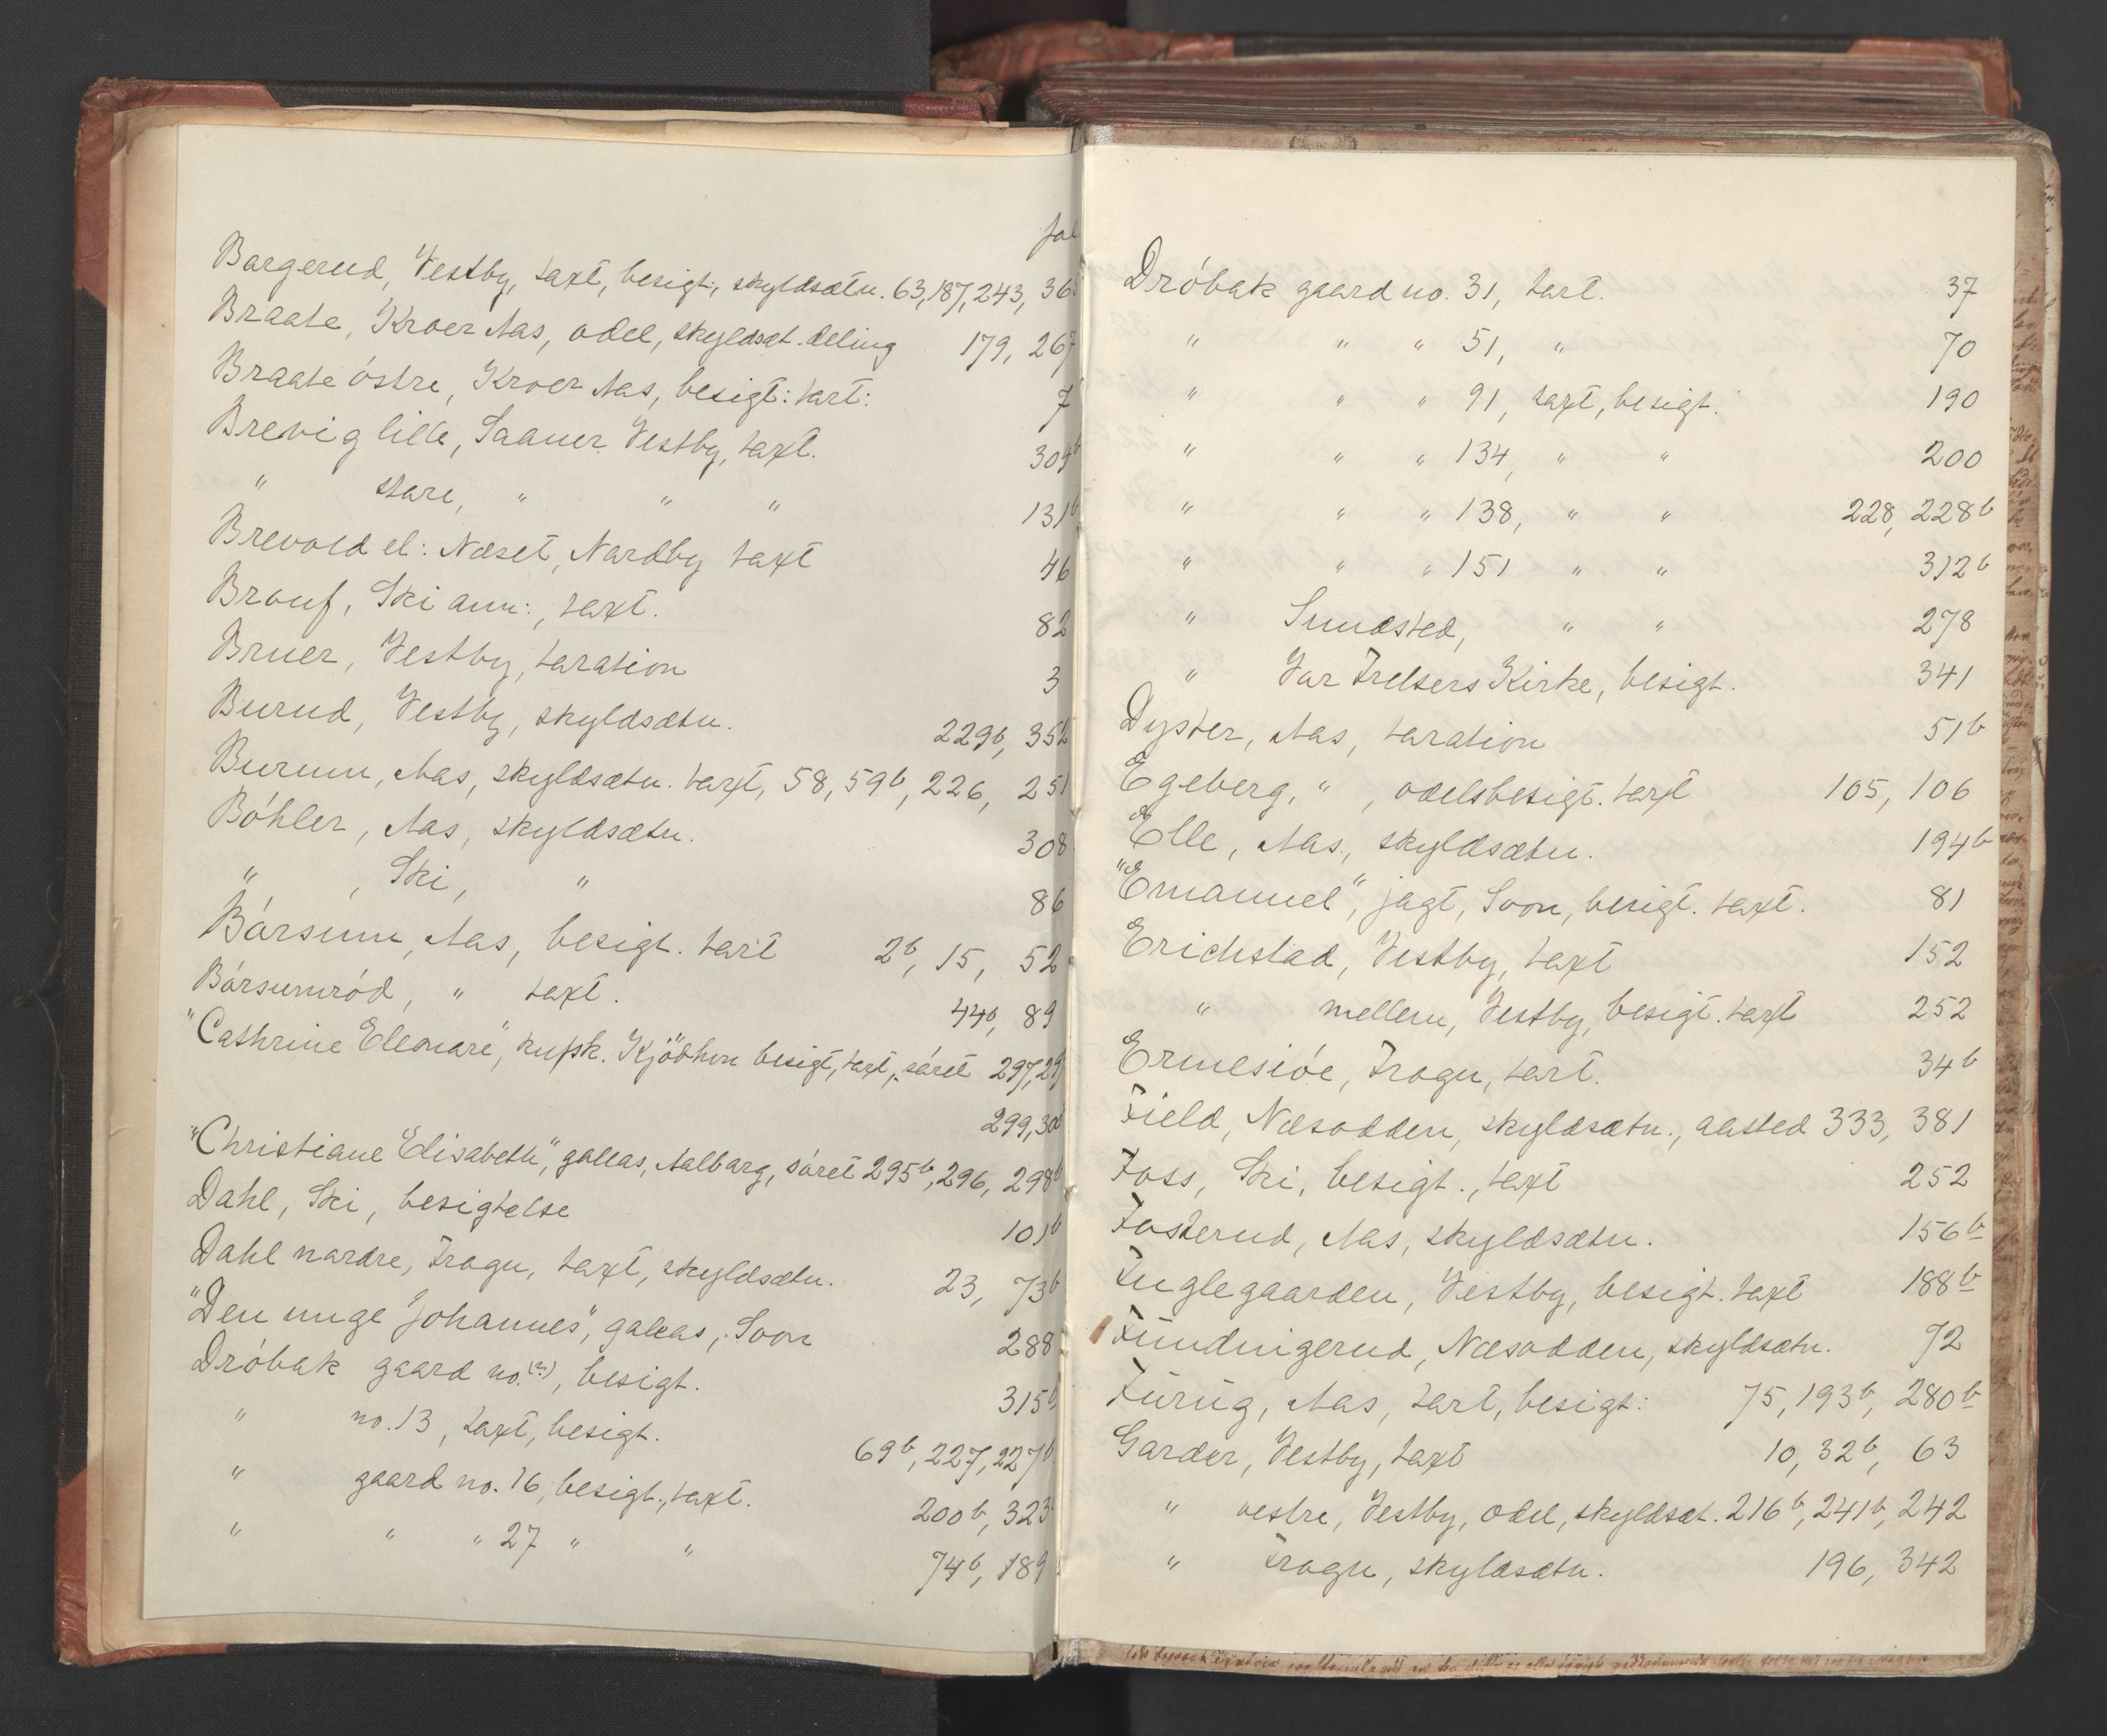 fol
Borgerud, Vestby, taxt, besigt:, skyldsætn. 63, 187, 243, 36
Braate, Kroer Aas, odel, skyldsæt. deling 179, 267
Braate östre, Kroer Aas, besigt: taxt: 7
Brevig lille, Saaner Vestby, taxt. 304b
" store, " " " 131b
Brevold el: Næset, Nordby taxt 46
Brouf, Ski ann:, taxt. 82
Bruer, Vestby, taxation 3
Burud, Vestby, skyldsætn. 229b, 352
Burum, Aas, skyldsætn. taxt, 58, 59b, 226, 251
Böhler, Aas, skyldsætn. 308
" , Ski, " 86
Börsum, Aas, besigt. taxt 2b, 15, 52
Börsumröd, " taxt. 44b, 89
"Cathrine Eleonore", kufsk. Kjöbhvn besigt, taxt, söret 297, 29
299, 300
"Christiane Elisabeth", galeas, Aalborg, söret 295b, 296, 298b
Dahl, Ski, besigtelse 101b
Dahl nordre, Frogn, taxt, skyldsætn. 23, 73b
"Den unge Johannes", galeas, Soon 288
Dröbak gaard no. (?), besigt. 315b
" no. 13, taxt, besigt. 69b, 227, 227b
" gaard no. 16, besigt., taxt. 200b, 323
" " " 27 " " 74b, 189
Dröbak gaard no. 31, taxt. 37
" " " 51, " 70
" " " 91, taxt, besigt. 190
" " " 134, " " 200
" " " 138, " " 228, 228b
" " " 151 " " 312b
" Sundsted, " " 278
" Vor Frelsers Kirke, besigt. 341
Dyster, Aas, taxation 51b
Egeberg, " , odelsbesigt. taxt 105, 106
Elle, Aas, skyldsætn. 194b
"Emanuel", jagt, Soon, besigt. taxt. 81
Erichstad, Vestby, taxt 152
" mellem, Vestby, besigt. taxt 252
Ermesiöe, Frogn, taxt. 34b
Field, Næsodden, skyldsætn., aasted 333, 381
Foss, Ski, besigt., taxt 252
Fosterud, Aas, skyldsætn. 156b
Fuglegaarden, Vestby, besigt. taxt 188b
Fundingerud, Næsodden, skyldsætn. 72
Furug, Aas, taxt, besigt: 75, 193b, 280b
Garder, Vestby, taxt 10, 32b, 63
" vestre, Vestby, odel, skyldsæt. 216b, 241b, 242
" Frogn, skyldsætn. 196, 342